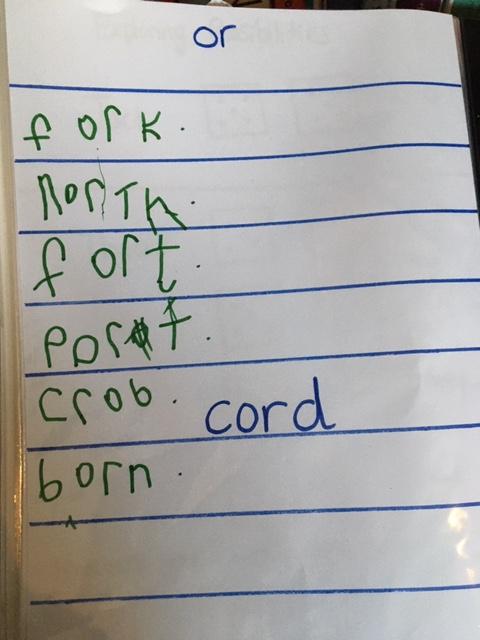 or
fork.
NorTh.
fort.
Port.
Crob. cord
born.